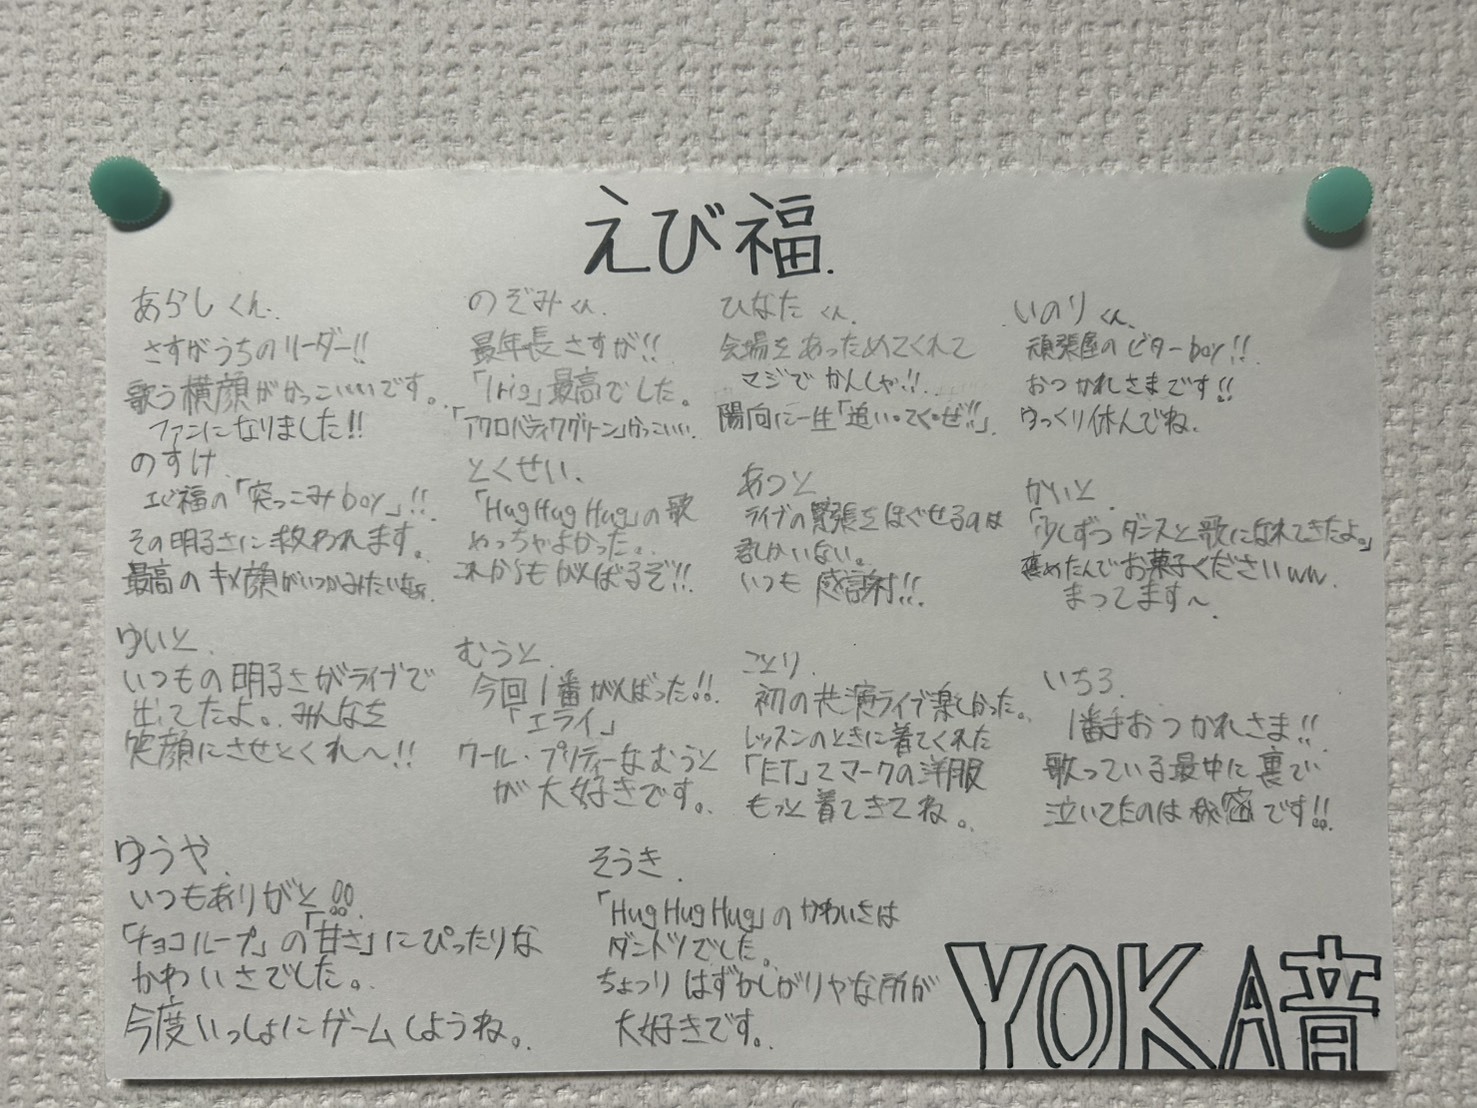 えび福.
あらしくん.
さすがうちのリーダー!!
歌う横顔がかっこいいです。
ファンになりました!!
のぞみくん
最年長さすが!!
「Iris」最高でした。
「アクロバティックグリーン」かっこいい.
ひなたくん.
会場をあっためてくれて
マジでかんしゃ!!
陽向に一生「追いてくぜ!!」.
いのりくん.
頑張屋のビターboy!!
おつかれさまです!!
ゆっくり休んでね.
のすけ.
えび福の「突っこみboy」!!
その明るさに救われます。
最高のキメ顔がいつかみたいな
とくせい.
「HugHugHug」の歌
めっちゃよかった。
これからもがんばるぞ!!
あつと
ライブの緊張をほぐせるのは
君しかいない。
いつも感謝!!
かいと
「少しずつダンスと歌になれてきたよ。」
褒めたんでお菓子くださいww.
まってます〜.
ゆいと.
いつもの明るさがライブで
出てたよ。みんなを
笑顔にさせとくれ〜!!
むうと.
今回1番がんばった!!
「エライ」
クール・プリティーなむうと
が大好きです。
ことり.
初の共演ライブ楽しかった。
レッスンのときに着てくれた
「ET」てマークの洋服
もっと着てきてね。
いちろ.
1番手おつかれさま!!
歌っている最中に裏で
泣いてたのは秘密です!!
ゆうや.
いつもありがと!!
「チョコループ」の「甘さ」にぴったりな
かわいさでした。
今度いっしょにゲームしようね。
そうき.
「HugHugHug」のかわいさは
ダントツでした。
ちょっりはずかしがりやな所が
大好きです。
YOKA音